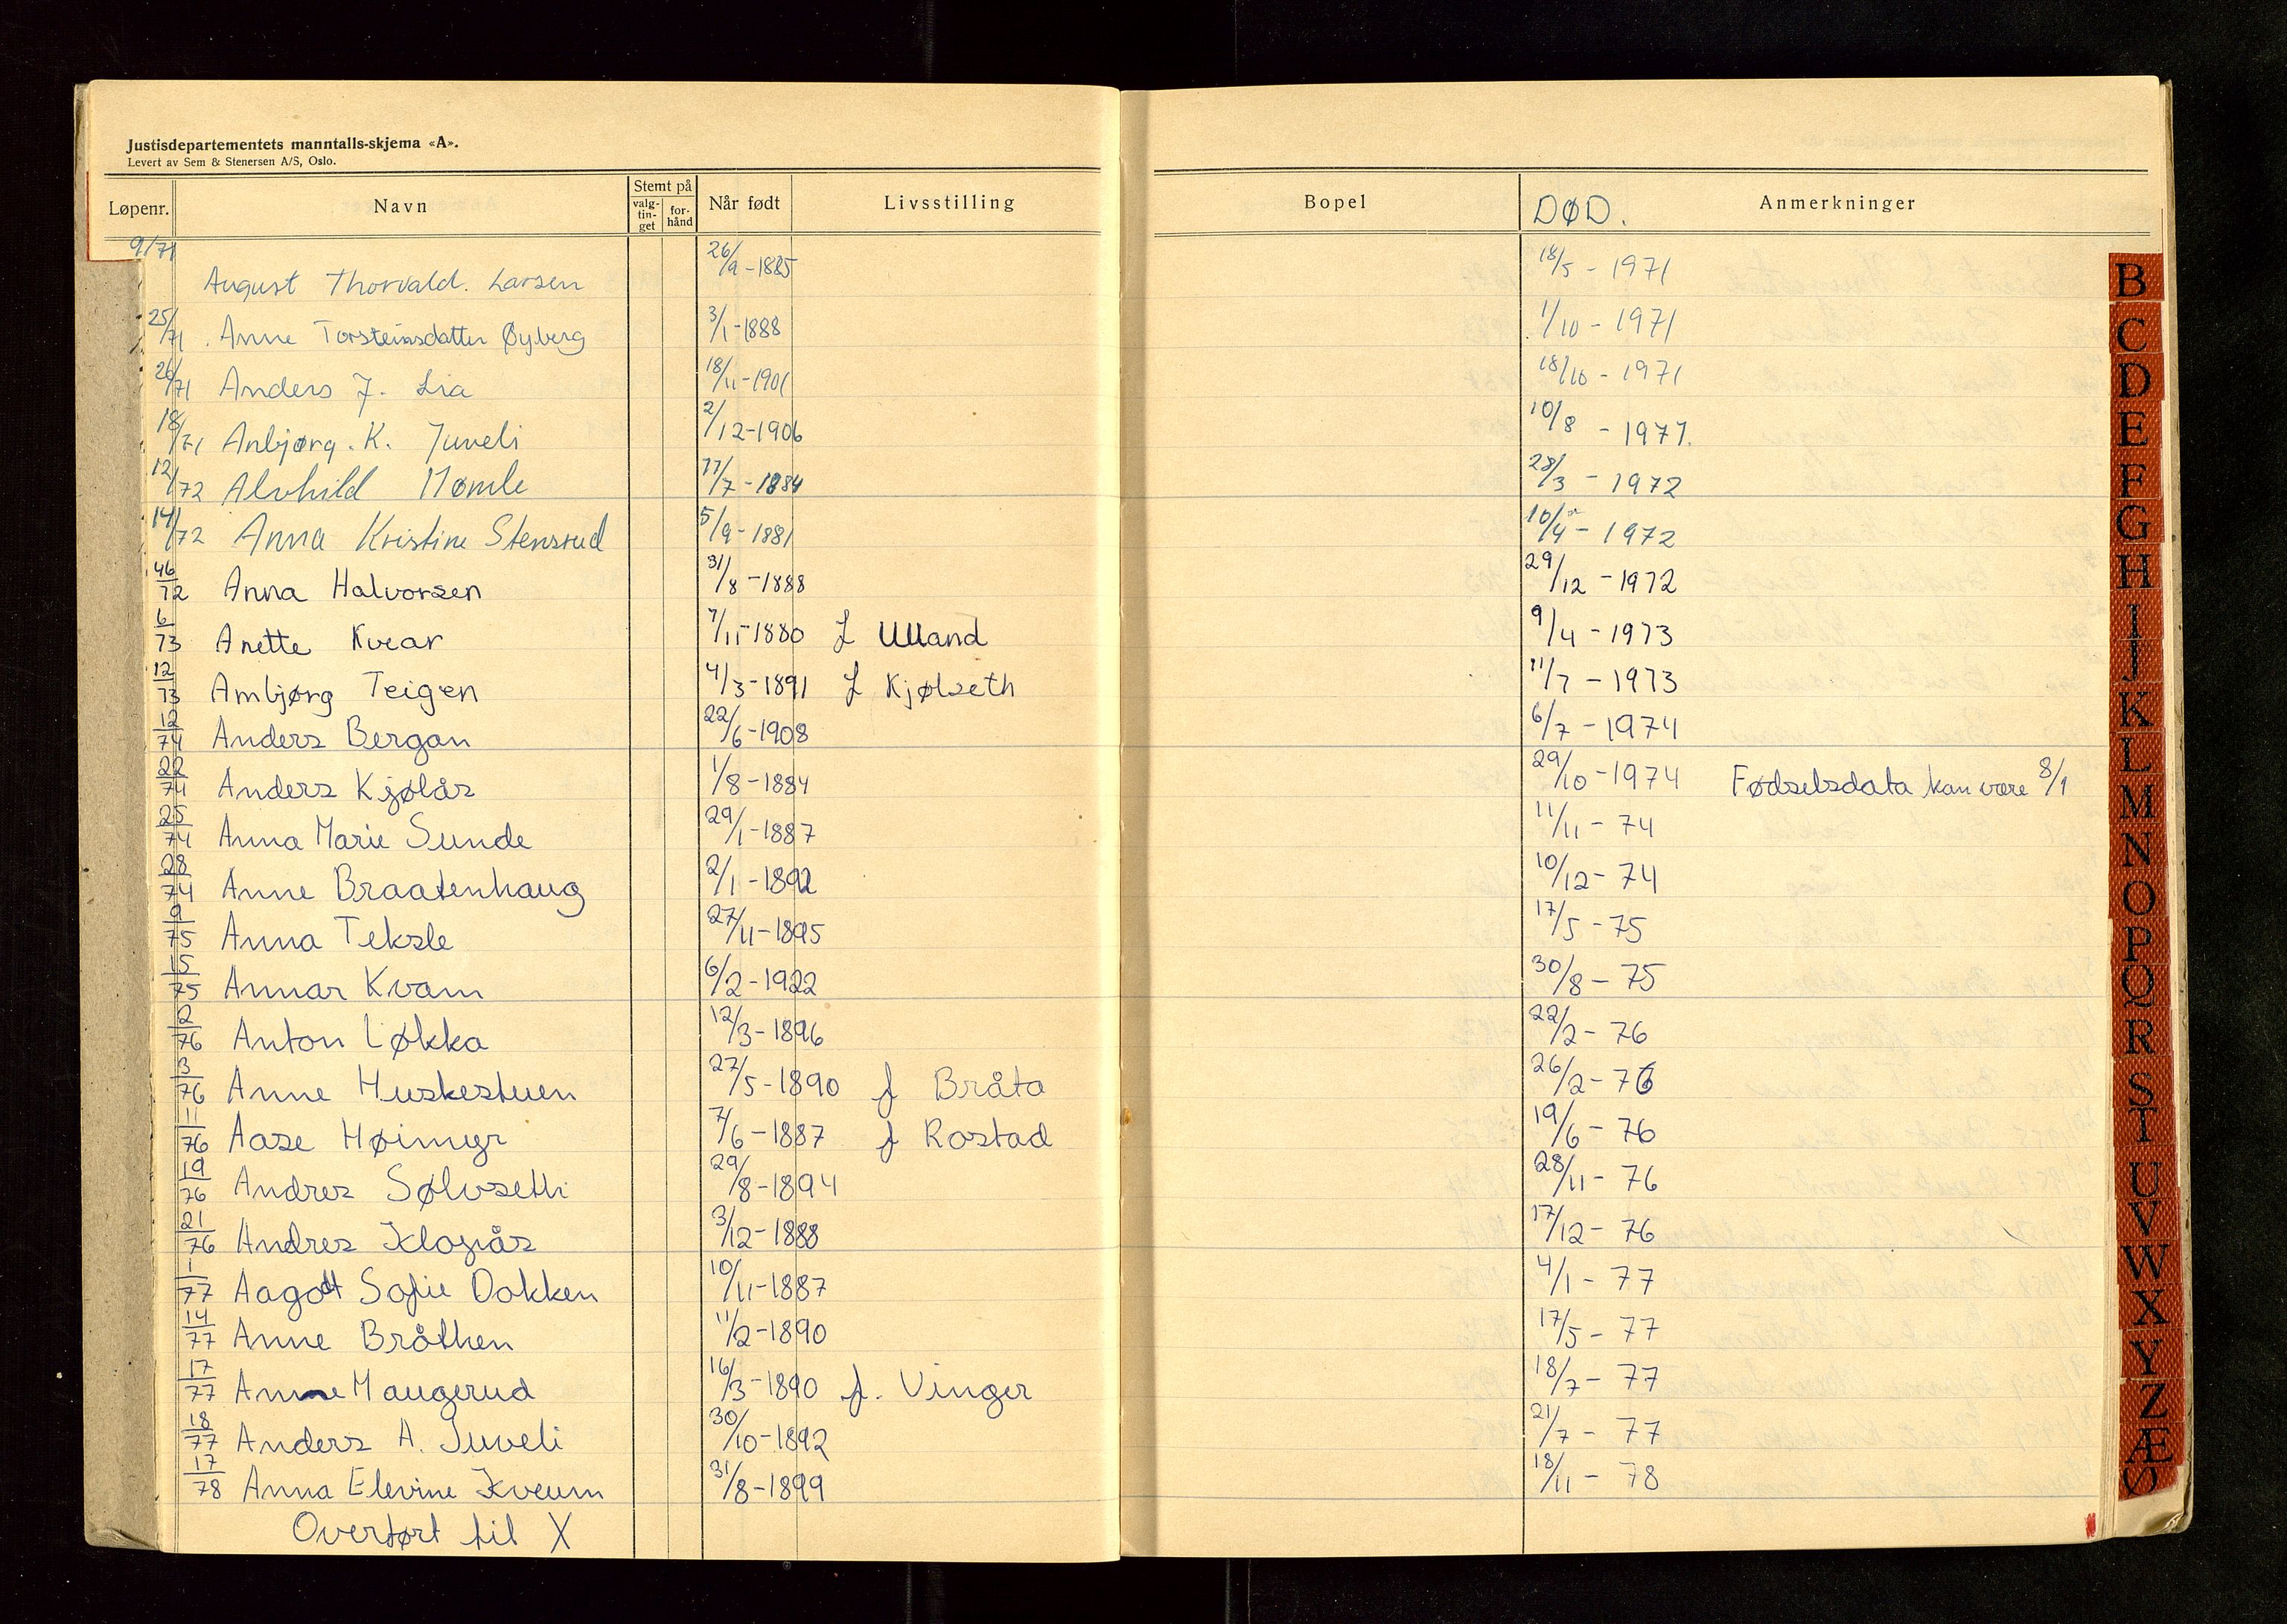 Justisdepartementets manntalls-skjema «A».
Levert av Sem & Stenersen A/S, Oslo.
Løpenr. Navn Stemt på valg-tin-get for-hånd Når født Livsstilling Bopel DØD. Anmerkninger
9/71 August Thorvald. Larsen 26/9-1885 18/5-1971
25/71 Anne Torsteinsdatter Øyberg 3/1-1888 1/10-1971
26/71 Anders J. Lia 18/11-1901 18/10-1971
18/71 Anbjørg. K. Juveli 2/12-1906 10/8-1971.
12/72 Alvhild Nømle 17/7-1884 28/3-1972
14/72 Anna Kristine Stensrud 5/9-1881 10/4-1972
46/72 Anna Halvorsen 31/8-1888 29/12-1972
6/73 Anette Kvear 7/11-1880 f Ulland 9/4-1973
12/73 Ambjørg Teigen 4/3-1891 f Kjølseth 11/7-1973
12/74 Anders Bergan 22/6-1908 6/7-1974
22/74 Anders Kjølås 1/8-1884 29/10-1974 Fødselsdata kan være 8/1
25/74 Anna Marie Sunde 29/1-1887 11/11-74
28/74 Anne Braatenhaug 2/1-1892 10/12-74
9/75 Anna Teksle 27/11-1895 17/5-75
15/75 Annar Kvam 6/2-1922 30/8-75
2/76 Anton Løkka 12/3-1896 22/2-76
3/76 Anne Huskestuen 27/5-1890 f Bråta 26/2-76
11/76 Aase Høimyr 7/6-1887 f Rostad 19/6-76
19/76 Andres Sølvseth 29/8-1894 28/11-76
21/76 Andres Klognås 3/12-1888 17/12-76
1/77 Aagodt Sofie Dokken 10/11-1887 4/1-77
14/77 Anne Bråthen 11/2-1890 17/5-77
17/77 Anne Haugerud 16/3-1890 f. Vinger 18/7-77
18/77 Anders A. Juveli 30/10-1892 21/7-77
17/78 Anna Elevine Kveum 31/8-1899 18/11-78
Overført til X
B
C
D
E
F
G
H
I
J
K
L
M
N
O
P
Q
R
S
T
U
V
W
X
Y
Z
Æ
Ø